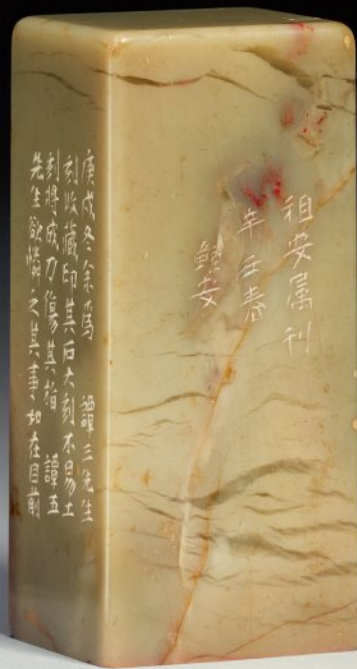 祖安属刊
辛亥春
鯨安
庚戌冬余為 譚三先生
刻收藏印其石大刻不易工
刻將成刀傷其指 譚五
先生欲憐之其事如在目前